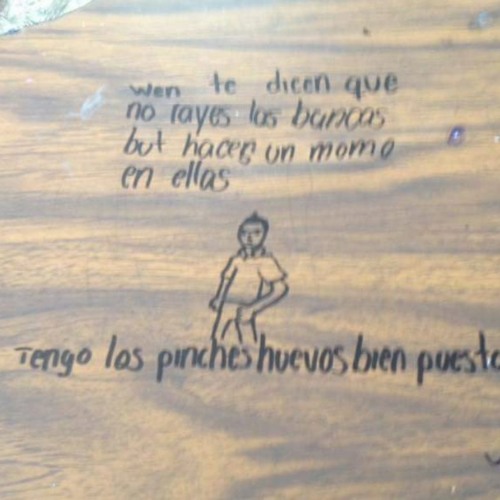 wen te dicen que
no rayes las bancas
but haces un momo
en ellas
Tengo los pinches huevos bien puesto